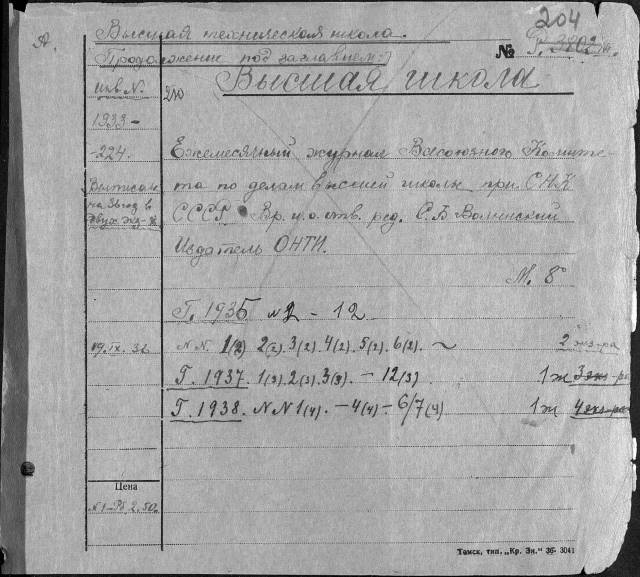 А.
Высшая техническая школа.
204
Продолжение под заглавием:
№ Г. 3802
Высшая школа
Инв. №
1933 –
– 224.
Выписан
на 36 год в
двух экз-х
Ежемесячный журнал Всесоюзного Комите-
та по делам высшей школы при СНК
СССР Вр. и. о. отв. ред. С. Б. Волынский
Издатель ОНТИ.
М. 8°
Г. 1936 №2 – 12
19.IX.36 №№ 1(2) 2(2) 3(2). 4(2). 5(2). 6(2). ~ 2 экз-ра
Г. 1937. 1(3) 2(3) 3(3). – 12(3) 1 ж 3 экз-ра
Г. 1938. №№ 1(4). – 4(4) – 6/7(4) 1 ж 4 экз-ра
Цена
№1–Рб. 2.50
Томск, тип. „Кр. Зн." 36- 3041